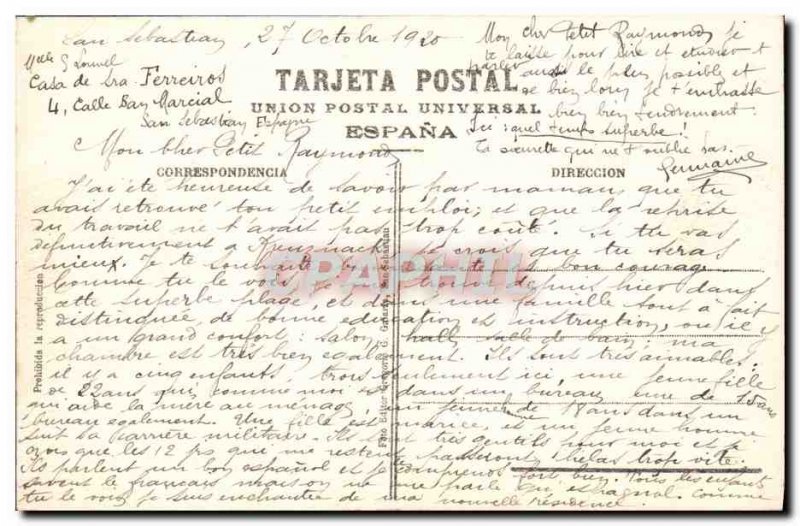 San Sebastian, 27 Octobre 1920
Mlle G
Casa de Sra Ferreiros
4, Calle San Marcial
San Sebastian Espagne
TARJETA POSTAL
UNION POSTAL UNIVERSAL
ESPAÑA
Mon cher Petit Raymond, je
te laisse pour lire et étudier et
parler aussi le plus possible et
de bien loin je t'embrasse
bien bien tendrement.
Ici: quel temps superbe!
Ta sœurette qui ne t'oublie pas.
Germaine
Mon cher Petit Raymond,
CORRESPONDENCIA
DIRECCION
J'ai été heureuse de savoir par maman que tu
avais retrouvé ton petit emploi; et que la reprise
du travail ne t'avait pas trop coûté. Si tu vas
définitivement à Kreuznack je crois que tu seras
mieux. Je te souhaite bonne et bon courage
Comme tu le vois, je depuis hier dans
cette superbe plage, et dans une famille tout à fait
distinguée, de bonne éducation et instruction, où il y
a un grand confort: salon, hall, salle de bain; ma
chambre est très bien également. Ils sont très aimables.
il y a cinq enfants, trois seulement ici, une jeune fille
de 22 ans qui comme moi est dans un bureau, une de 15 ans
qui aide la mère au ménage, un jeune homme de 18 ans dans un
bureau également. Une fille est mariée, et un jeune homme
suit la carrière militaire. Ils sont très gentils pour moi et je
crois que les 12 jrs que me restent passeront hélas trop vite.
Ils parlent un bon espagnol et je comprends fort bien. Tous les enfants
savent le français mais on ne me parle qu'espagnol. Comme
tu le vois je suis enchantée de ma nouvelle résidence.
Prohibida la reproduccion
CPAPHIL